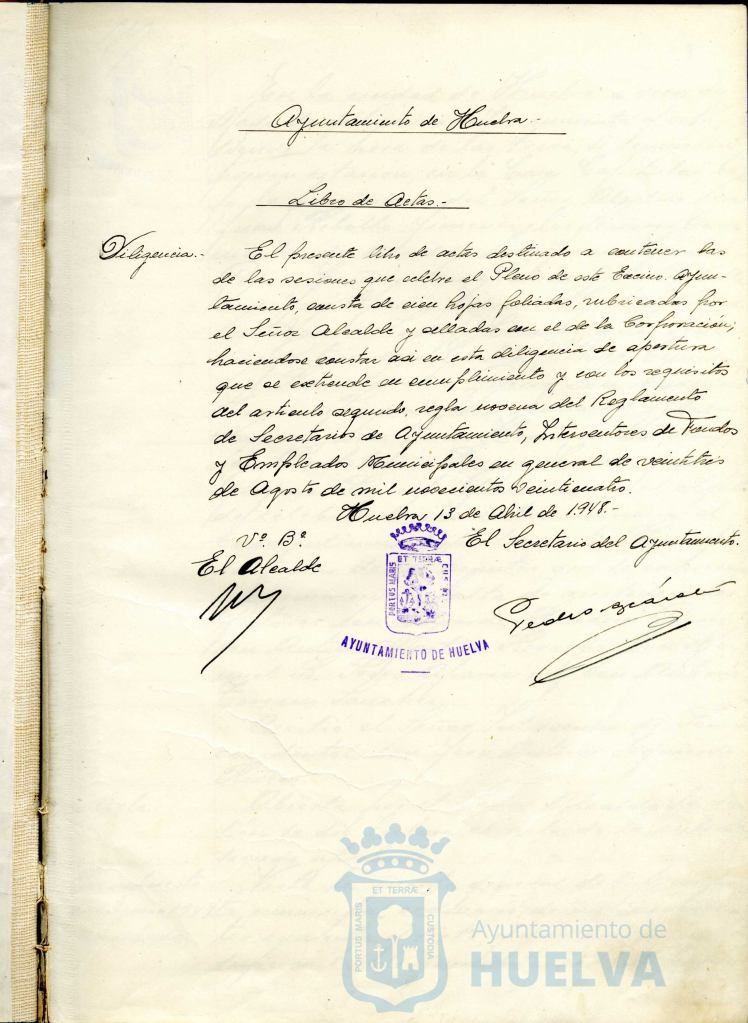 Ayuntamiento de Huelva.-
Libro de Actas.-
Diligencia.- El presente libro de actas destinado a contener las
de las sesiones que celebre el Pleno de este Excmo. Ayun-
tamiento, consta de cien hojas foliadas, rubricadas por
el Señor Alcalde y selladas con el de la Corporación;
haciendose constar asi en esta diligencia de apertura
que se extiende en cumplimiento y con los requisitos
del articulo segundo, regla novena del Reglamento
de Secretarios de Ayuntamiento, Interventores de Fondos
y Empleados Municipales en general de veintitrés
de Agosto de mil novecientos veinticuatro.
Huelva 13 de Abril de 1.948.-
Vº Bº El Secretario del Ayuntamiento.
El Alcalde
PORTUS MARIS ET TERRÆ
Pedro
AYUNTAMIENTO DE HUELVA
PORTUS MARIS ET TERRÆ CUSTODIA
Ayuntamiento de
HUELVA